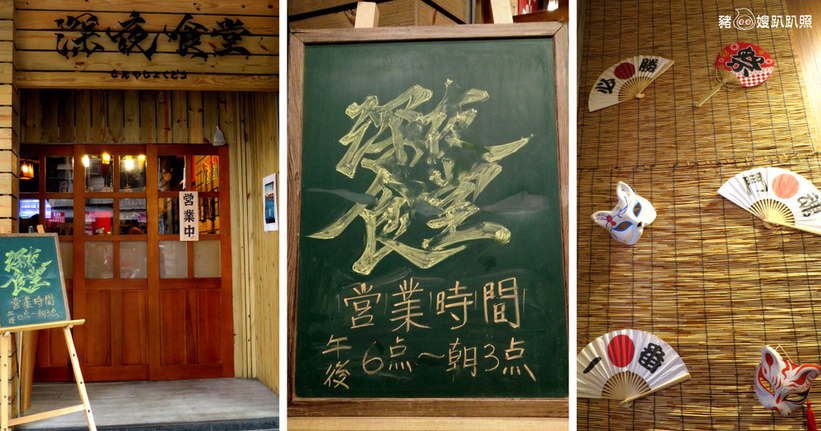 深夜食堂
しんやしょくどう
営業中
深夜
食堂
営業時間
午後6点~朝3点
深夜
食堂
営業時間
午後6点~朝3点
豬嫂趴趴照
必勝
祭
鬥魂
一番